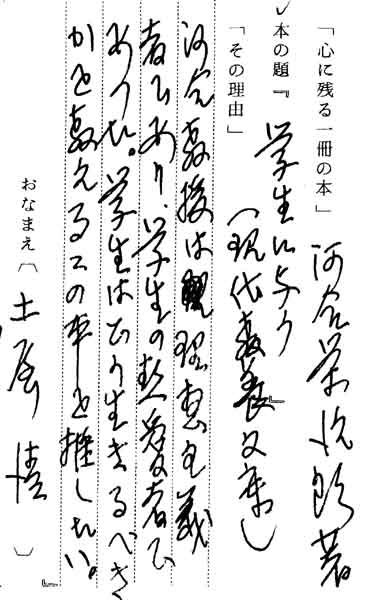 「心に残る一冊の本」 河合栄治郎著
本の題『学生に与う
「その理由」 (現代教養文庫)
河合教授は理想主義
者であり、学生の敬愛者で
あった。学生はどう生きるべき
かを教えるこの書を推したい。
おなまえ〔土屋 清〕